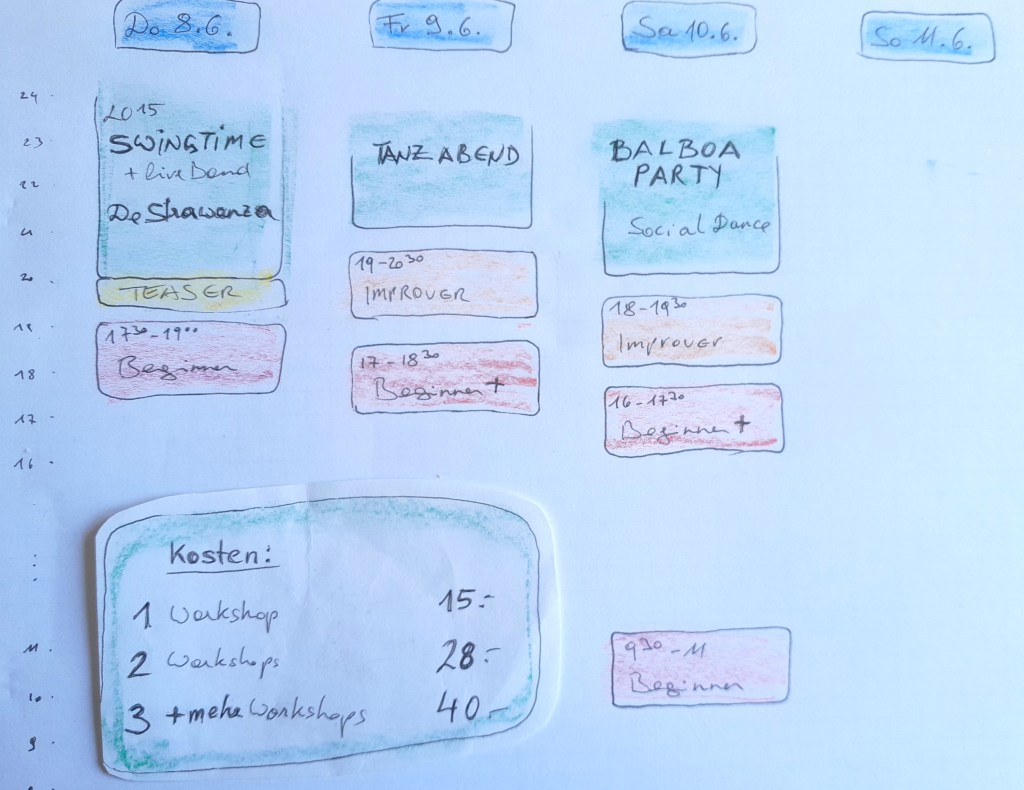 Do 8.6.
Fr 9.6.
Sa 10.6.
So 11.6.
24
23
22
21
20
19
18
17
16
11
10
9
20 15
SWINGTIME
+ live Band
TEASER
17 30 - 19 00
Beginner
TANZABEND
19 - 20 30
IMPROVER
17 - 18 30
Beginner +
BALBOA
PARTY
Social Dance
18 - 19 30
Improver
16 - 17 30
Beginner +
9 30 - 11
Beginner
Kosten:
1 Workshop 15.-
2 Workshops 28.-
3 + mehr Workshops 40.-